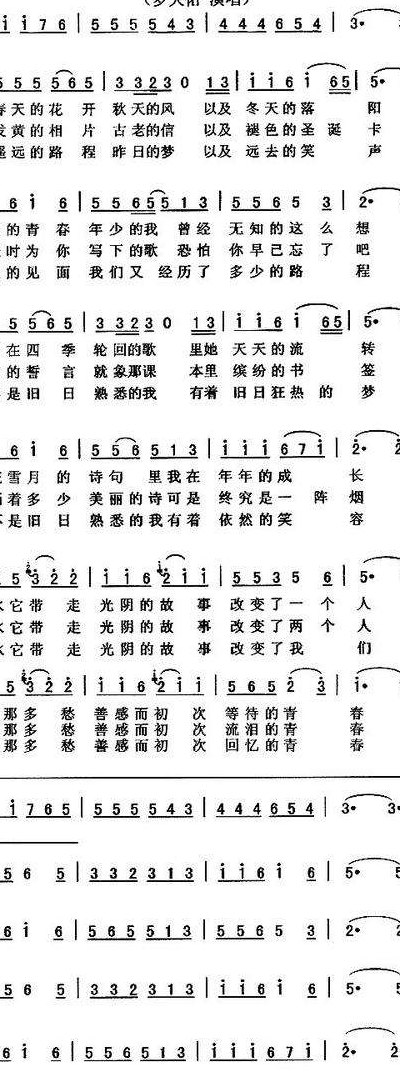 (罗大佑 演唱)
i i 7 6 | 5 5 5 5 4 3 | 4 4 4 6 5 4 | 3·
5 5 5 5 5 | 3 3 2 3 0 1 3 | i i 6 i 6 5 | 5·
春天的花 开 秋天的风 以及 冬天的落 阳
发黄的相 片 古老的信 以及 褪色的圣 诞 卡
遥远的路 程 昨日的梦 以及 远去的笑 声
6 i 6 | 5 5 6 5 5 1 3 | 5 5 6 5 3 | 2·
的青春 年少的我 曾经 无知的这么 想
时为你 写下的歌 恐怕 你早已忘了 吧
的见面 我们又 经历了 多少的路 程
5 5 6 5 | 3 3 2 3 0 1 3 | i i 6 i 6 5 | 5·
在四季 轮回的歌 里她 天天的流 转
的誓言 就象那课 本里 缤纷的书 签
是旧日 熟悉的我 有着 旧日狂热的 梦
6 i 6 | 5 5 6 5 1 3 | i i i 6 7 i | 2· 2
雪月的诗句 里我在 年年的成 长
着多少 美丽的诗可是 终究是一 阵 烟
是旧日 熟悉的我有着 依然的笑 容
5 3 2 2 | i i 6 2 i i | 5 5 3 5 6 | 5·
水它带 走 光阴的故 事 改变了一个 人
水它带 走 光阴的故 事 改变了两个 人
水它带 走 光阴的故 事 改变了我 们
5 3 2 2 | i i 6 2 i i | 5 6 5 2 3 | i·
那多愁 善感而初 次 等待的青 春
那多愁 善感而初 次 流泪的青 春
那多愁 善感而初 次 回忆的青 春
i 7 6 5 | 5 5 5 5 4 3 | 4 4 4 6 5 4 | 3· 3
5 6 5 | 3 3 2 3 1 3 | i i 6 i 6 | 5· 5
6 i 6 | 5 6 5 5 1 3 | 5 5 6 5 3 | 2· 2
5 5 6 5 | 3 3 2 3 1 3 | i i 6 i 6 | 5· 5
6 i 6 | 5 5 6 5 1 3 | i i i 6 7 i | 2· 2